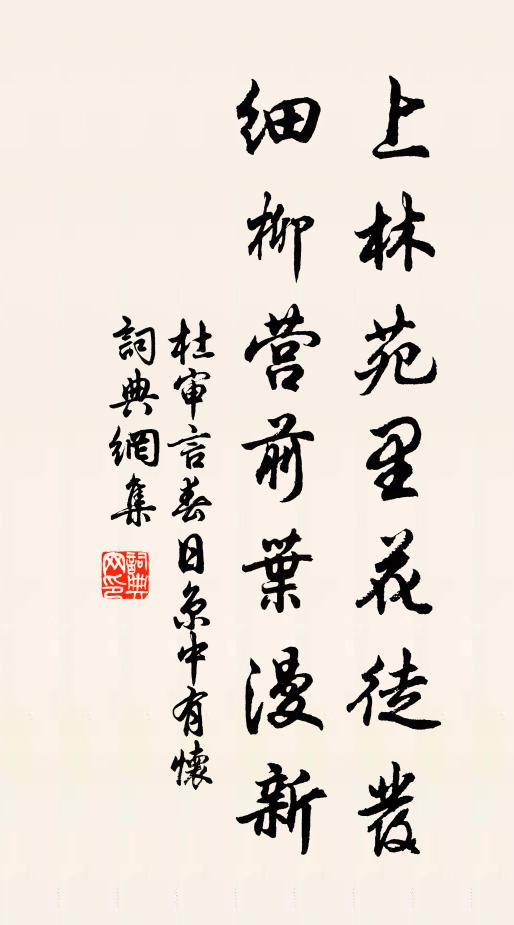 上林苑里花徒發
細柳營前葉漫新
杜审言春日京中有懷
詞典網集
詞典網印